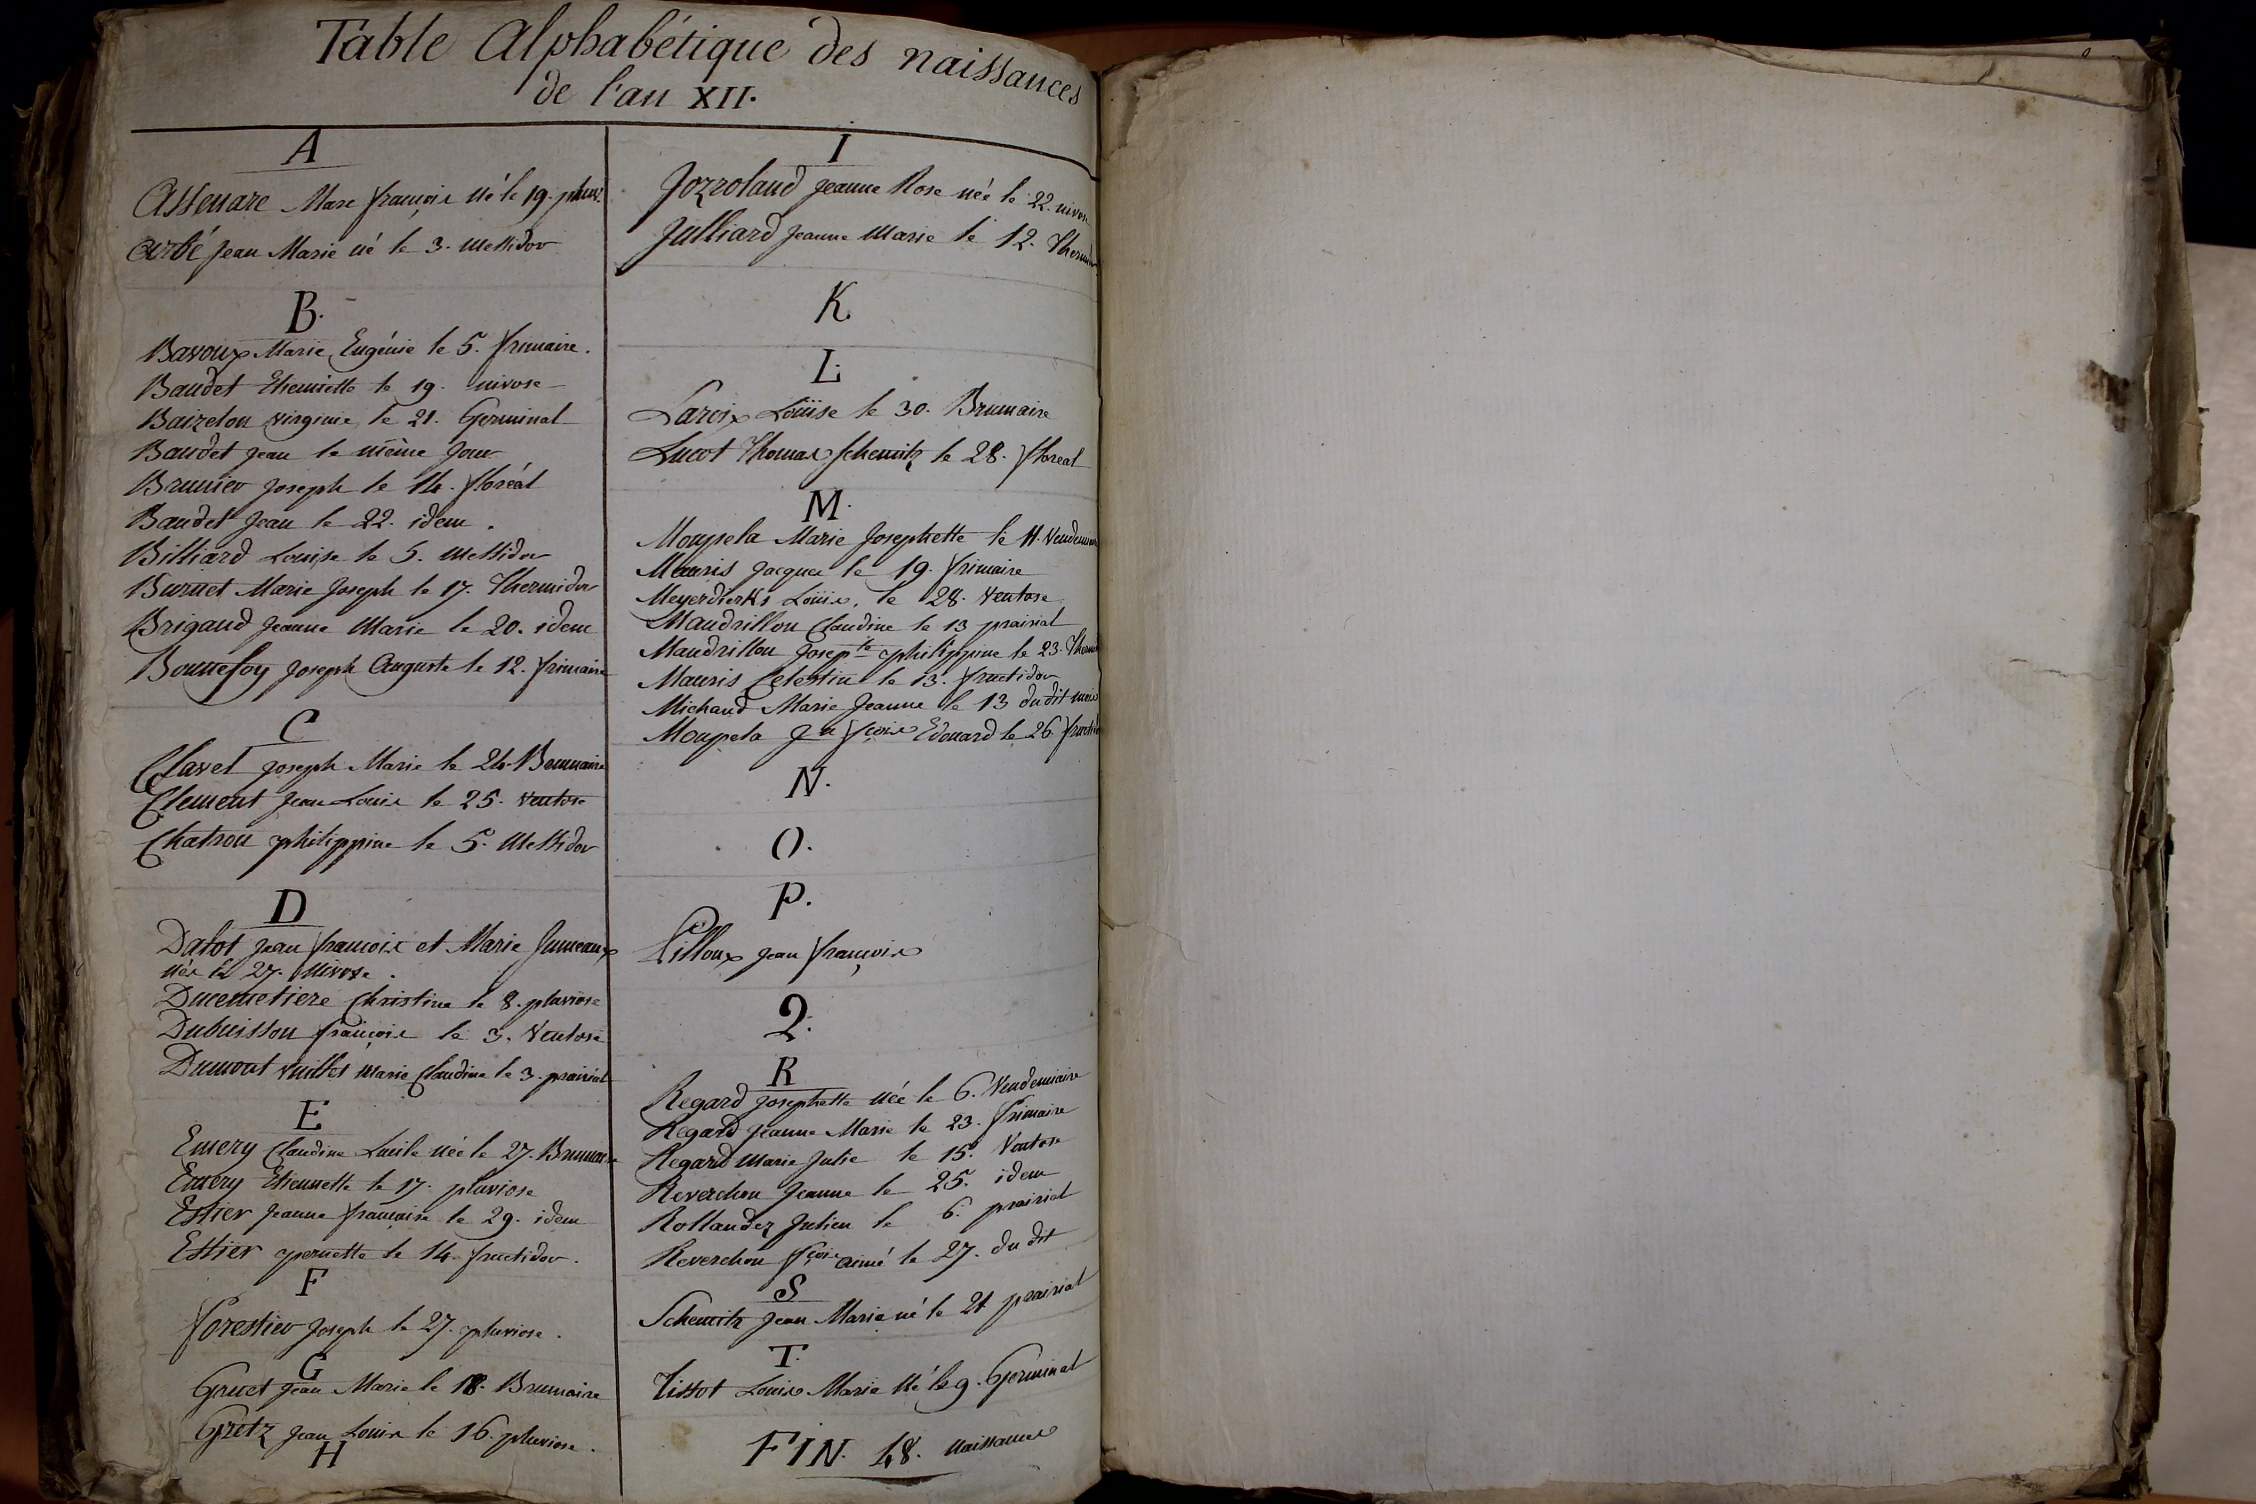 Table Alphabétique des naissances
de l'an XII.
A
Assenare Marc françois né le 19. pluv.
Arbé Jean Marie né le 3. Messidor
B.
Bavoux Marie Eugénie le 5. frimaire.
Baudet Etienette le 19. nivose
Baizelon virginie le 21. Germinal
Baudet Jean le même Jour
Brunier Joseph le 14. floréal
Baudet Jean le 22. idem.
Billiard Louise le 5. Messidor
Burnet Marie Joseph le 17. Thermidor
Brigand Jeanne Marie le 20. idem
Bonnefoy Joseph Auguste le 12. frimaire
C
Clavel Joseph Marie le 24. Brumaire
Clement Jean Louis le 25. Ventose
Chatron philippine le 5. Messidor
D
Dalot Jean francois et Marie Jumeaux
nés le 27. Nivose.
Ducemetiere Christine le 8. pluviose
Dubuisson françois le 3. Ventose
Dumont Vuillet Marie Claudine le 3. prairial
E
Emery Claudine Lucile née le 27. Brumaire
Emery Etiennette le 17. pluviose
Estier Jeanne françoise le 29. idem
Estier pernette le 14. fructidor.
F
forestier Joseph le 27. pluviose.
G
Gruet Jean Marie le 18. Brumaire
Gretz Jean Louis le 16. pluviose.
H
I
Jozzoland Jeanne Rose née le 22. nivose
Julliard Jeanne Marie le 12. Thermidor
K.
L.
Laroix Loüise le 30. Brumaire
Lucot Thomas Schemitz le 28. floreal
M.
Monpela Marie Josephette le 11. Vendemiaire
Mauris Jacques le 19. frimaire
Meyerdierks Loüis. le 28. Ventose
Mandrillon Claudine le 13 prairial
Mandrillon Josepte philippine le 23. Thermid
Mauris Celestin le 13. fructidor
Michaud Marie Jeanne le 13 du dit mois
Monpela Jn fçois Edouard le 26. fructid
N.
O.
P.
Pilloux Jean françois
Q.
R
Regard Josephette née le 6. Vendemiaire
Regard Jeanne Marie le 23. frimaire
Regard Marie Julie le 15. Ventose
Reverchon Jeanne le 25. idem
Rollandez Julien le 6. prairial
Reverchon fçois aimé le 27. du dit
S
Schemitz Jean Marie né le 21 prairial
T.
Tissot Louis Marie né le 9. Germinal
FIN. 48. naissances